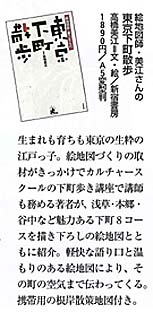 絵地図師・美江さんの
東京下町散歩
高橋美江=文・絵/新宿書房
1890円/A5変型判
東京
下町
散歩
生まれも育ちも東京の生粋の
江戸っ子。絵地図づくりの取
材がきっかけでカルチャース
クールの下町歩き講座で講師
も務める著者が、浅草・本郷・
谷中など魅力ある下町8コー
スを描き下ろしの絵地図とと
もに紹介。軽快な語り口と温
もりのある絵地図により、そ
の町の空気まで伝わってくる。
携帯用の根岸散策地図付き。